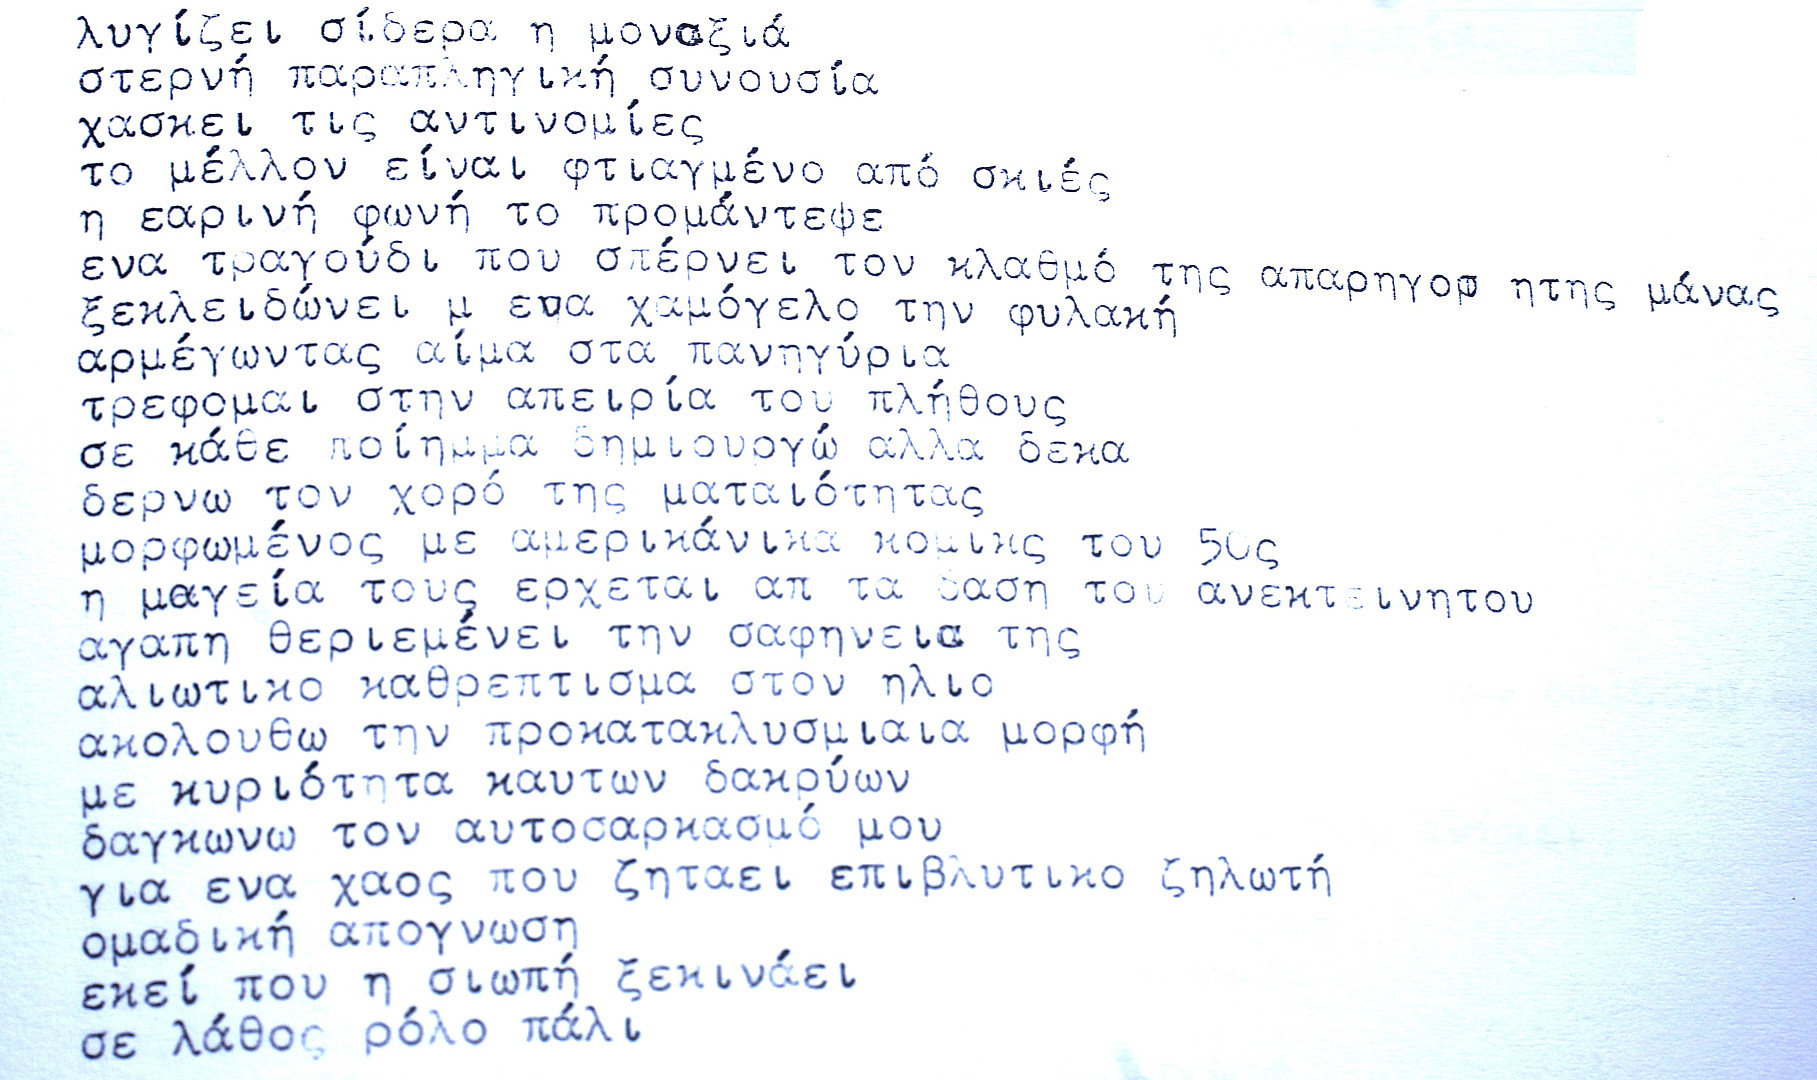 λυγίζει σίδερα η μοναξιά
στερνή παραπληγική συνουσία
χασκει τις αντινομίες
το μέλλον είναι φτιαγμένο από σκιές
η εαρινή φωνή το προμάντεψε
ενα τραγούδι που σπέρνει τον κλαθμό της απαρηγορ ητης μάνας
ξεκλειδώνει μ ενα χαμόγελο την φυλακή
αρμέγωντας αίμα στα πανηγύρια
τρεφομαι στην απειρία του πλήθους
σε κάθε ποίημμα δημιουργώ αλλα δεκα
δερνω τον χορό της ματαιότητας
μορφωμένος με αμερικάνικα κομικς του 50ς
η μαγεία τους ερχεται απ τα δαση του ανεκτεινητου
αγαπη θεριεμένει την σαφηνεια της
αλιωτικο καθρεπτισμα στον ηλιο
ακολουθω την προκατακλυσμιαια μορφή
με κυριότητα καυτων δακρύων
δαγκωνω τον αυτοσαρκασμό μου
για ενα χαος που ζηταει επιβλυτικο ζηλωτή
ομαδική απογνωση
εκεί που η σιωπή ξεκινάει
σε λάθος ρόλο πάλι